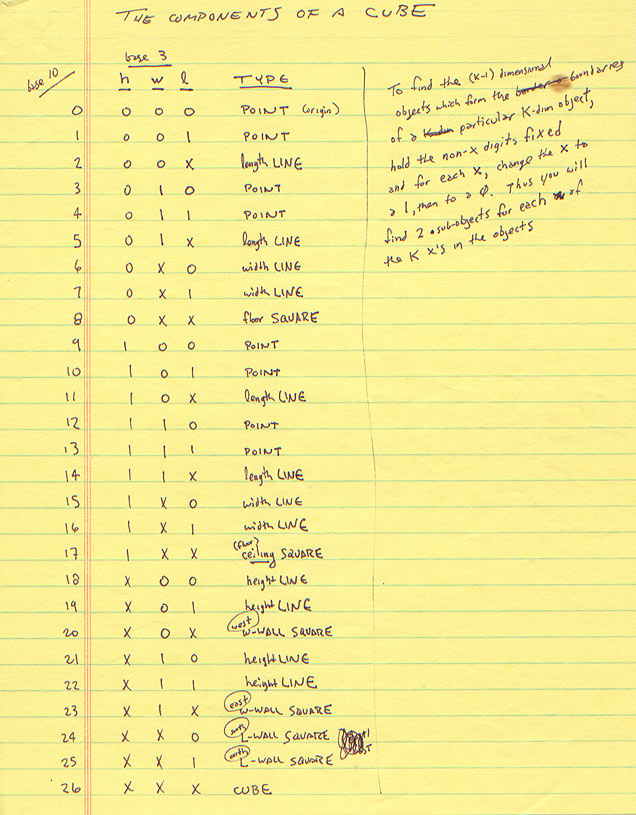 THE COMPONENTS OF A CUBE
base 10
base 3
h w l TYPE
0 0 0 0 POINT (origin)
1 0 0 1 POINT
2 0 0 X length LINE
3 0 1 0 POINT
4 0 1 1 POINT
5 0 1 X length LINE
6 0 X 0 width LINE
7 0 X 1 width LINE
8 0 X X floor SQUARE
9 1 0 0 POINT
10 1 0 1 POINT
11 1 0 X length LINE
12 1 1 0 POINT
13 1 1 1 POINT
14 1 1 X length LINE
15 1 X 0 width LINE
16 1 X 1 width LINE
(floor)
17 1 X X ceiling SQUARE
18 X 0 0 height LINE
19 X 0 1 height LINE
west
20 X 0 X W-WALL SQUARE
21 X 1 0 height LINE
22 X 1 1 height LINE
east
23 X 1 X W-WALL SQUARE
24 X X 0 L-WALL SQUARE
north
25 X X 1 L-WALL SQUARE
26 X X X CUBE
To find the (K-1) dimensional
objects which form the boundaries
of a particular K-dim object,
hold the non-X digits fixed
and for each X, change the X to
a 1, then to a 0. Thus you will
find 2 sub-objects for each of
the K X's in the objects